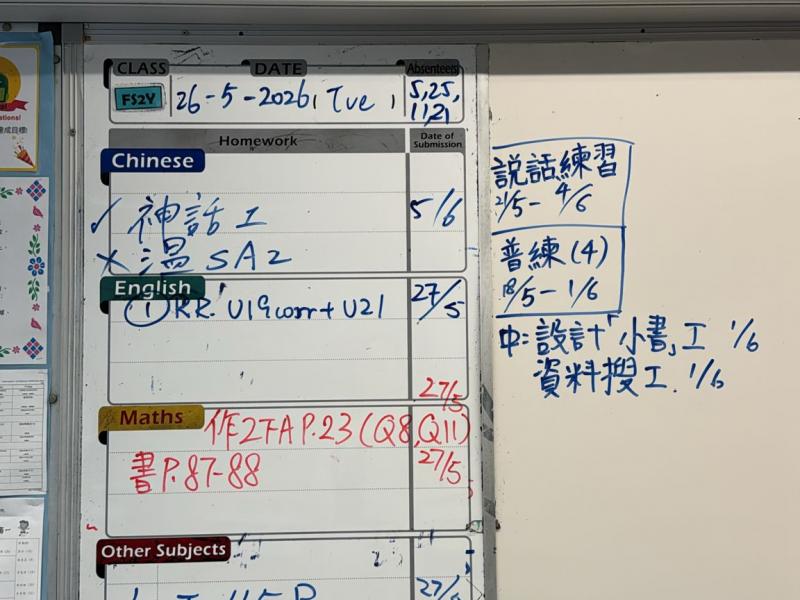 CLASS DATE Absentee(s)
FS2Y 26-5-2026, Tue, 5,25,
11,21
Homework Date of Submission
Chinese
✓ 神話工 5/6
× 溫 SA2
English
① RR. U19 corr + U21 27/5
27/5
Maths
作2FA P.23 (Q8,Q11)
書P.87-88 27/5
Other Subjects
27/5
説話練習
21/5 - 4/6
普練(4)
18/5 - 1/6
中: 設計「小書」工 1/6
資料搜工. 1/6